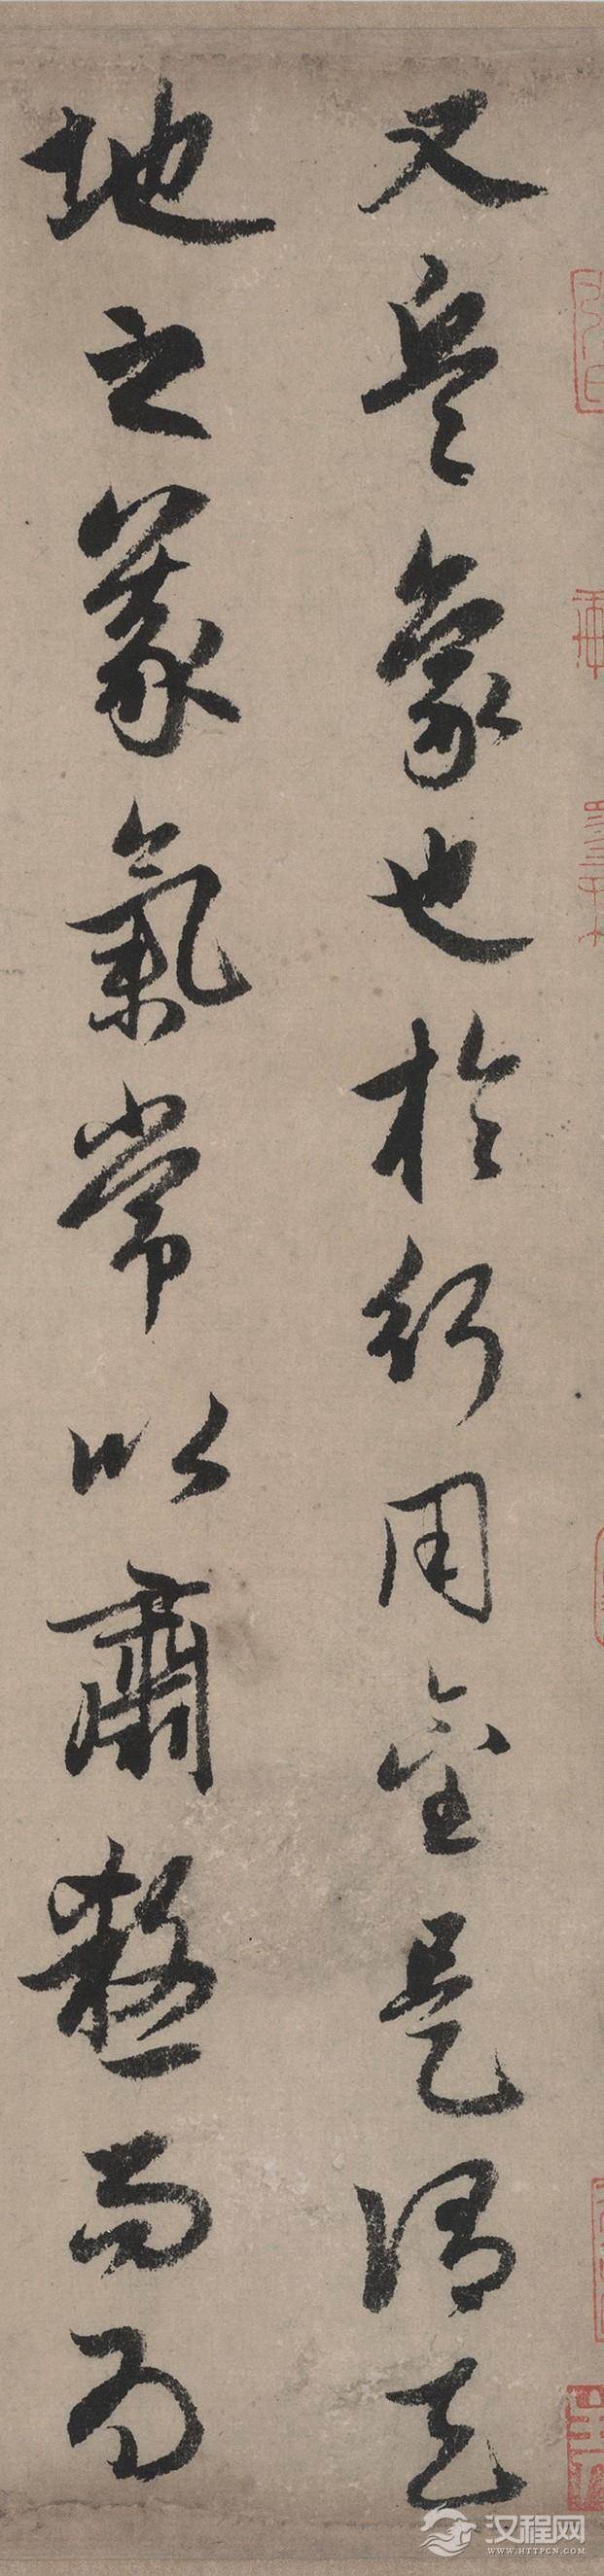 又兵象也於行用金是謂天
地之義氣常以肅煞而為
汉程网
WWW.HTTPCN.COM